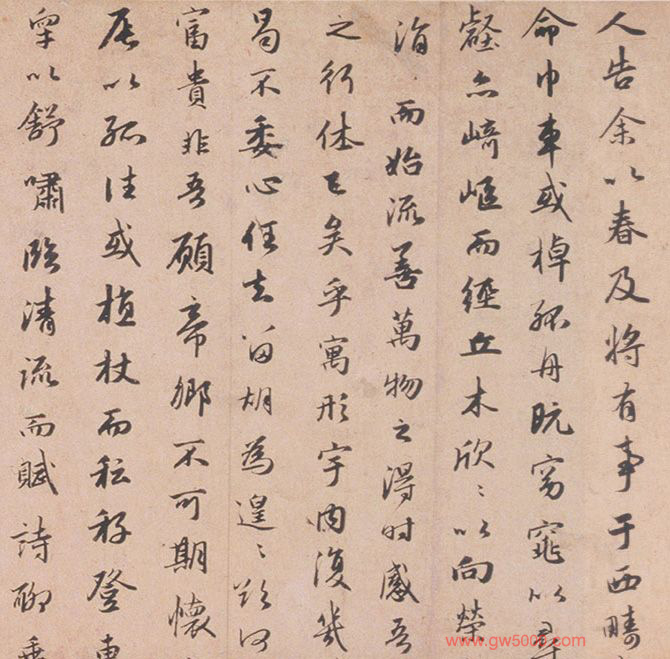 人告余以春及將有事于西疇
命巾車或棹孤舟既窈窕以尋
壑亦崎嶇而經丘木欣〻以向榮
涓而始流善萬物之得時感吾
之行休已矣乎寓形宇內復幾
曷不委心任去留胡為遑〻欲何
富貴非吾願帝鄉不可期懷
辰以孤往或植杖而耘耔登東
皋以舒嘯臨清流而賦詩聊乘